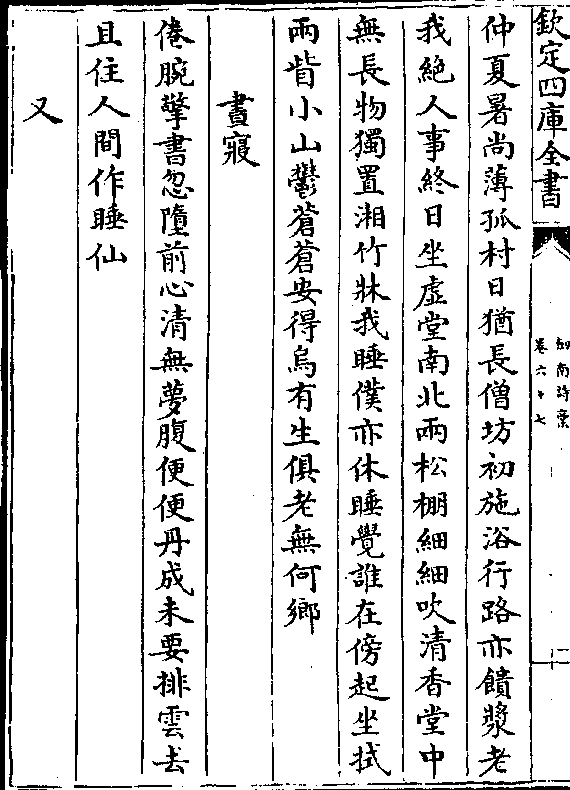 欽定四庫全書
劍南詩藁
卷六十七
二
仲夏暑尚薄孤村日猶長僧坊初施浴行路亦饋漿老
我絶人事終日坐虛堂南北兩松棚細細吹清香堂中
無長物獨置湘竹牀我睡僕亦休睡覺誰在傍起坐拭
兩眥小山鬱蒼蒼安得烏有生俱老無何鄉
晝寢
倦腕擎書忽墮前心清無夢腹便便丹成未要排雲去
且住人間作睡仙
又